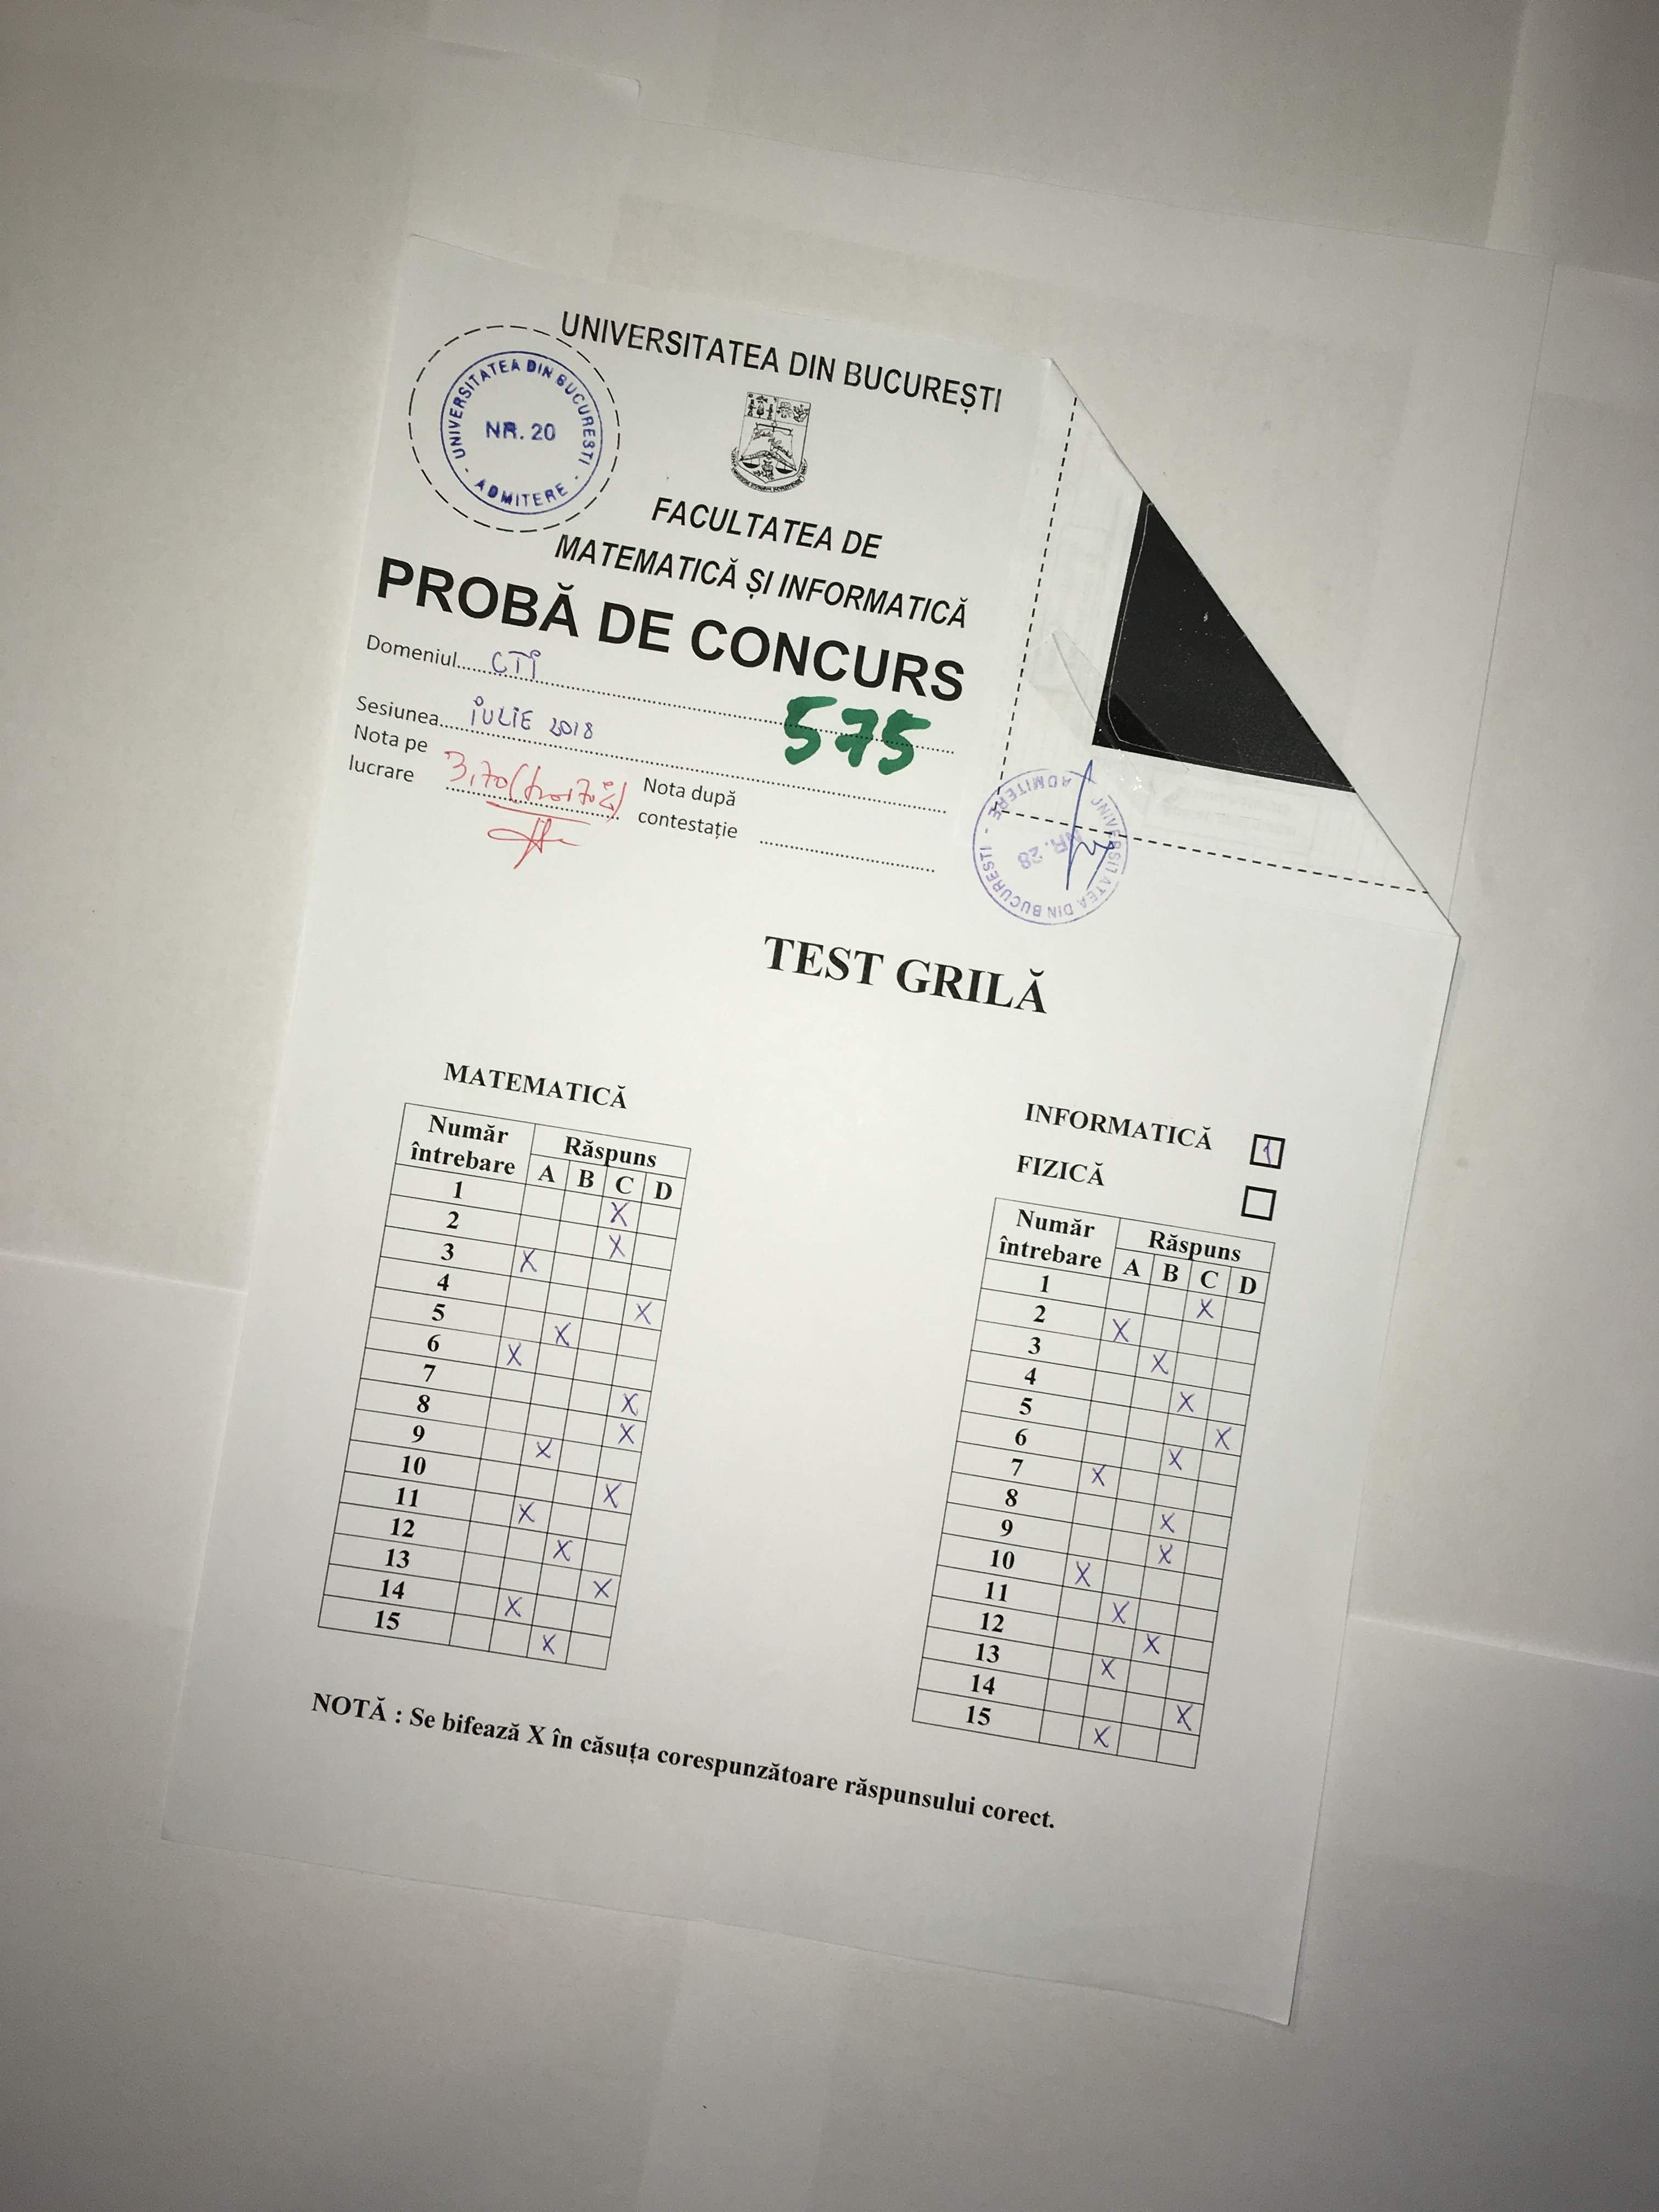 UNIVERSITATEA DIN BUCUREȘTI
UNIVERSITATEA DIN BUCURESTI
NR. 20
ADMITERE
FACULTATEA DE
MATEMATICĂ ȘI INFORMATICĂ
PROBĂ DE CONCURS
Domeniul...... CTI
575
Sesiunea.... IULIE 2018
Nota pe lucrare 3,70
Nota după contestație
UNIVERSITATEA DIN BUCURESTI
NR. 28
ADMITERE
TEST GRILĂ
MATEMATICĂ
Număr întrebare Răspuns
A B C D
1 X
2 X
3 X
4 X
5 X
6 X
7 X
8 X
9 X
10 X
11 X
12 X
13 X
14 X
15 X
INFORMATICĂ 1
FIZICĂ
Număr întrebare Răspuns
A B C D
1 X
2 X
3 X
4 X
5 X
6 X
7 X
8 X
9 X
10 X
11 X
12 X
13 X
14 X
15 X
NOTĂ : Se bifează X în căsuța corespunzătoare răspunsului corect.